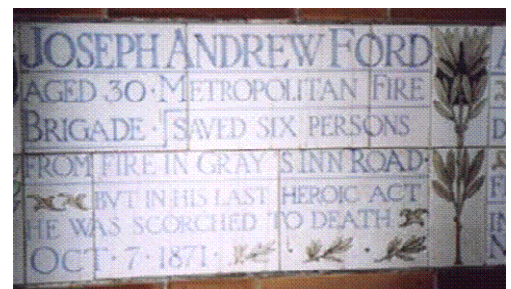 JOSEPH ANDREW FORD
AGED 30 · METROPOLITAN FIRE
BRIGADE · SAVED SIX PERSONS
FROM FIRE IN GRAY'S INN ROAD·
BVT IN HIS LAST HEROIC ACT
HE WAS SCORCHED TO DEATH
OCT · 7 · 1871 ·